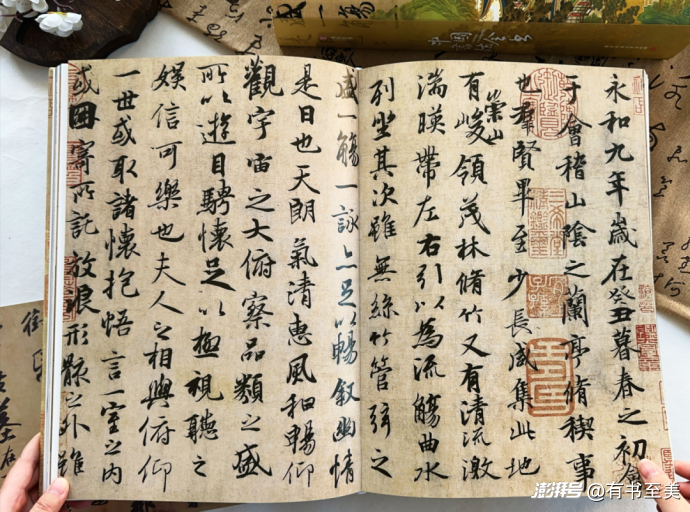 盛一觴
永和九年歲在癸丑暮春之初會
于會稽山陰之蘭亭脩稧事
也羣賢畢至少長咸集此地
有崇山峻領茂林脩竹又有清流激
湍暎帶左右引以為流觴曲水
列坐其次雖無絲竹管弦之
盛一觴一詠亦足以暢敘幽情
是日也天朗氣清惠風和暢仰
觀宇宙之大俯察品類之盛
所以遊目騁懷足以極視聽之
娛信可樂也夫人之相與俯仰
一世或取諸懷抱悟言一室之內
或因寄所託放浪形骸之外雖
澎湃号 @有书至美